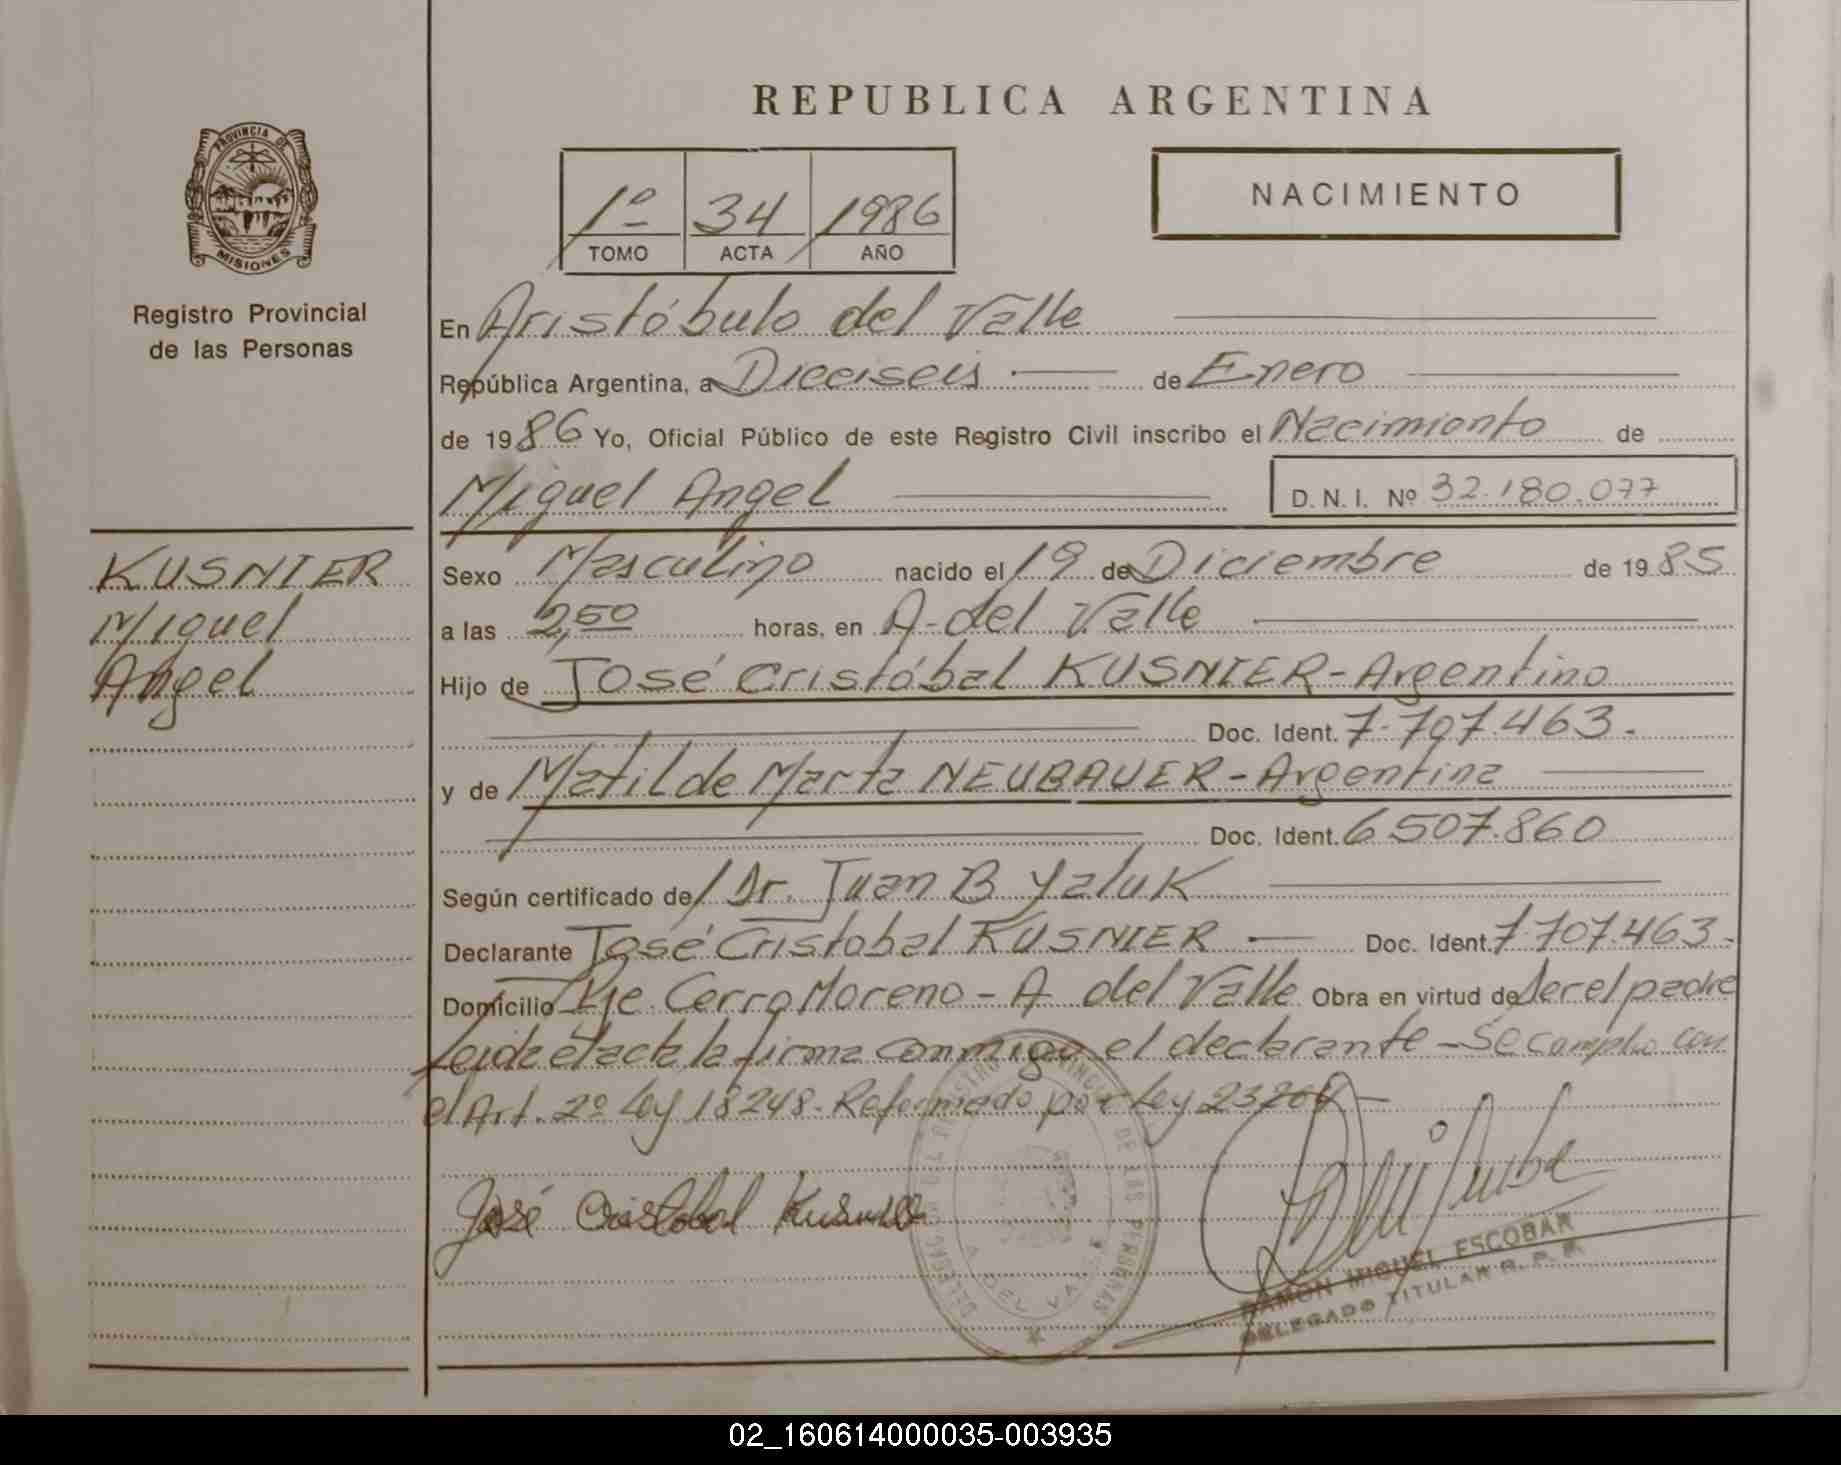 REPUBLICA ARGENTINA
PROVINCIA DE
MISIONES
Registro Provincial
de las Personas
1º 34 1986
TOMO ACTA AÑO
NACIMIENTO
En Aristóbulo del Valle
República Argentina, a Dieciseis de Enero
de 1986 Yo, Oficial Público de este Registro Civil inscribo el Nacimiento de
Miguel Angel D.N.I. Nº 32.180.077
KUSNIER
Miguel
Angel
Sexo Masculino nacido el 19 de Diciembre de 1985
a las 2,50 horas, en A. del Valle
Hijo de José Cristóbal KUSNIER - Argentino
Doc. Ident. 7.707.463.
y de Matilde Marta NEUBAUER - Argentina
Doc. Ident. 6.507.860
Según certificado de Dr. Juan B Yaluk
Declarante José Cristobal KUSNIER Doc. Ident. 7.707.463.
Domicilio Pje. Cerro Moreno - A del Valle Obra en virtud de Ser el padre
Leida el acta la firma conmigo el declarante - Se cumplio con
el Art. 2º Ley 18248. Reformado por Ley 23264 -
DELEGACION DEL REGISTRO PROVINCIAL DE LAS PERSONAS
A. DEL VALLE
José Cristobal Kusnier
RAMON MIGUEL ESCOBAR
DELEGADO TITULAR R. P. P.
02_160614000035-003935